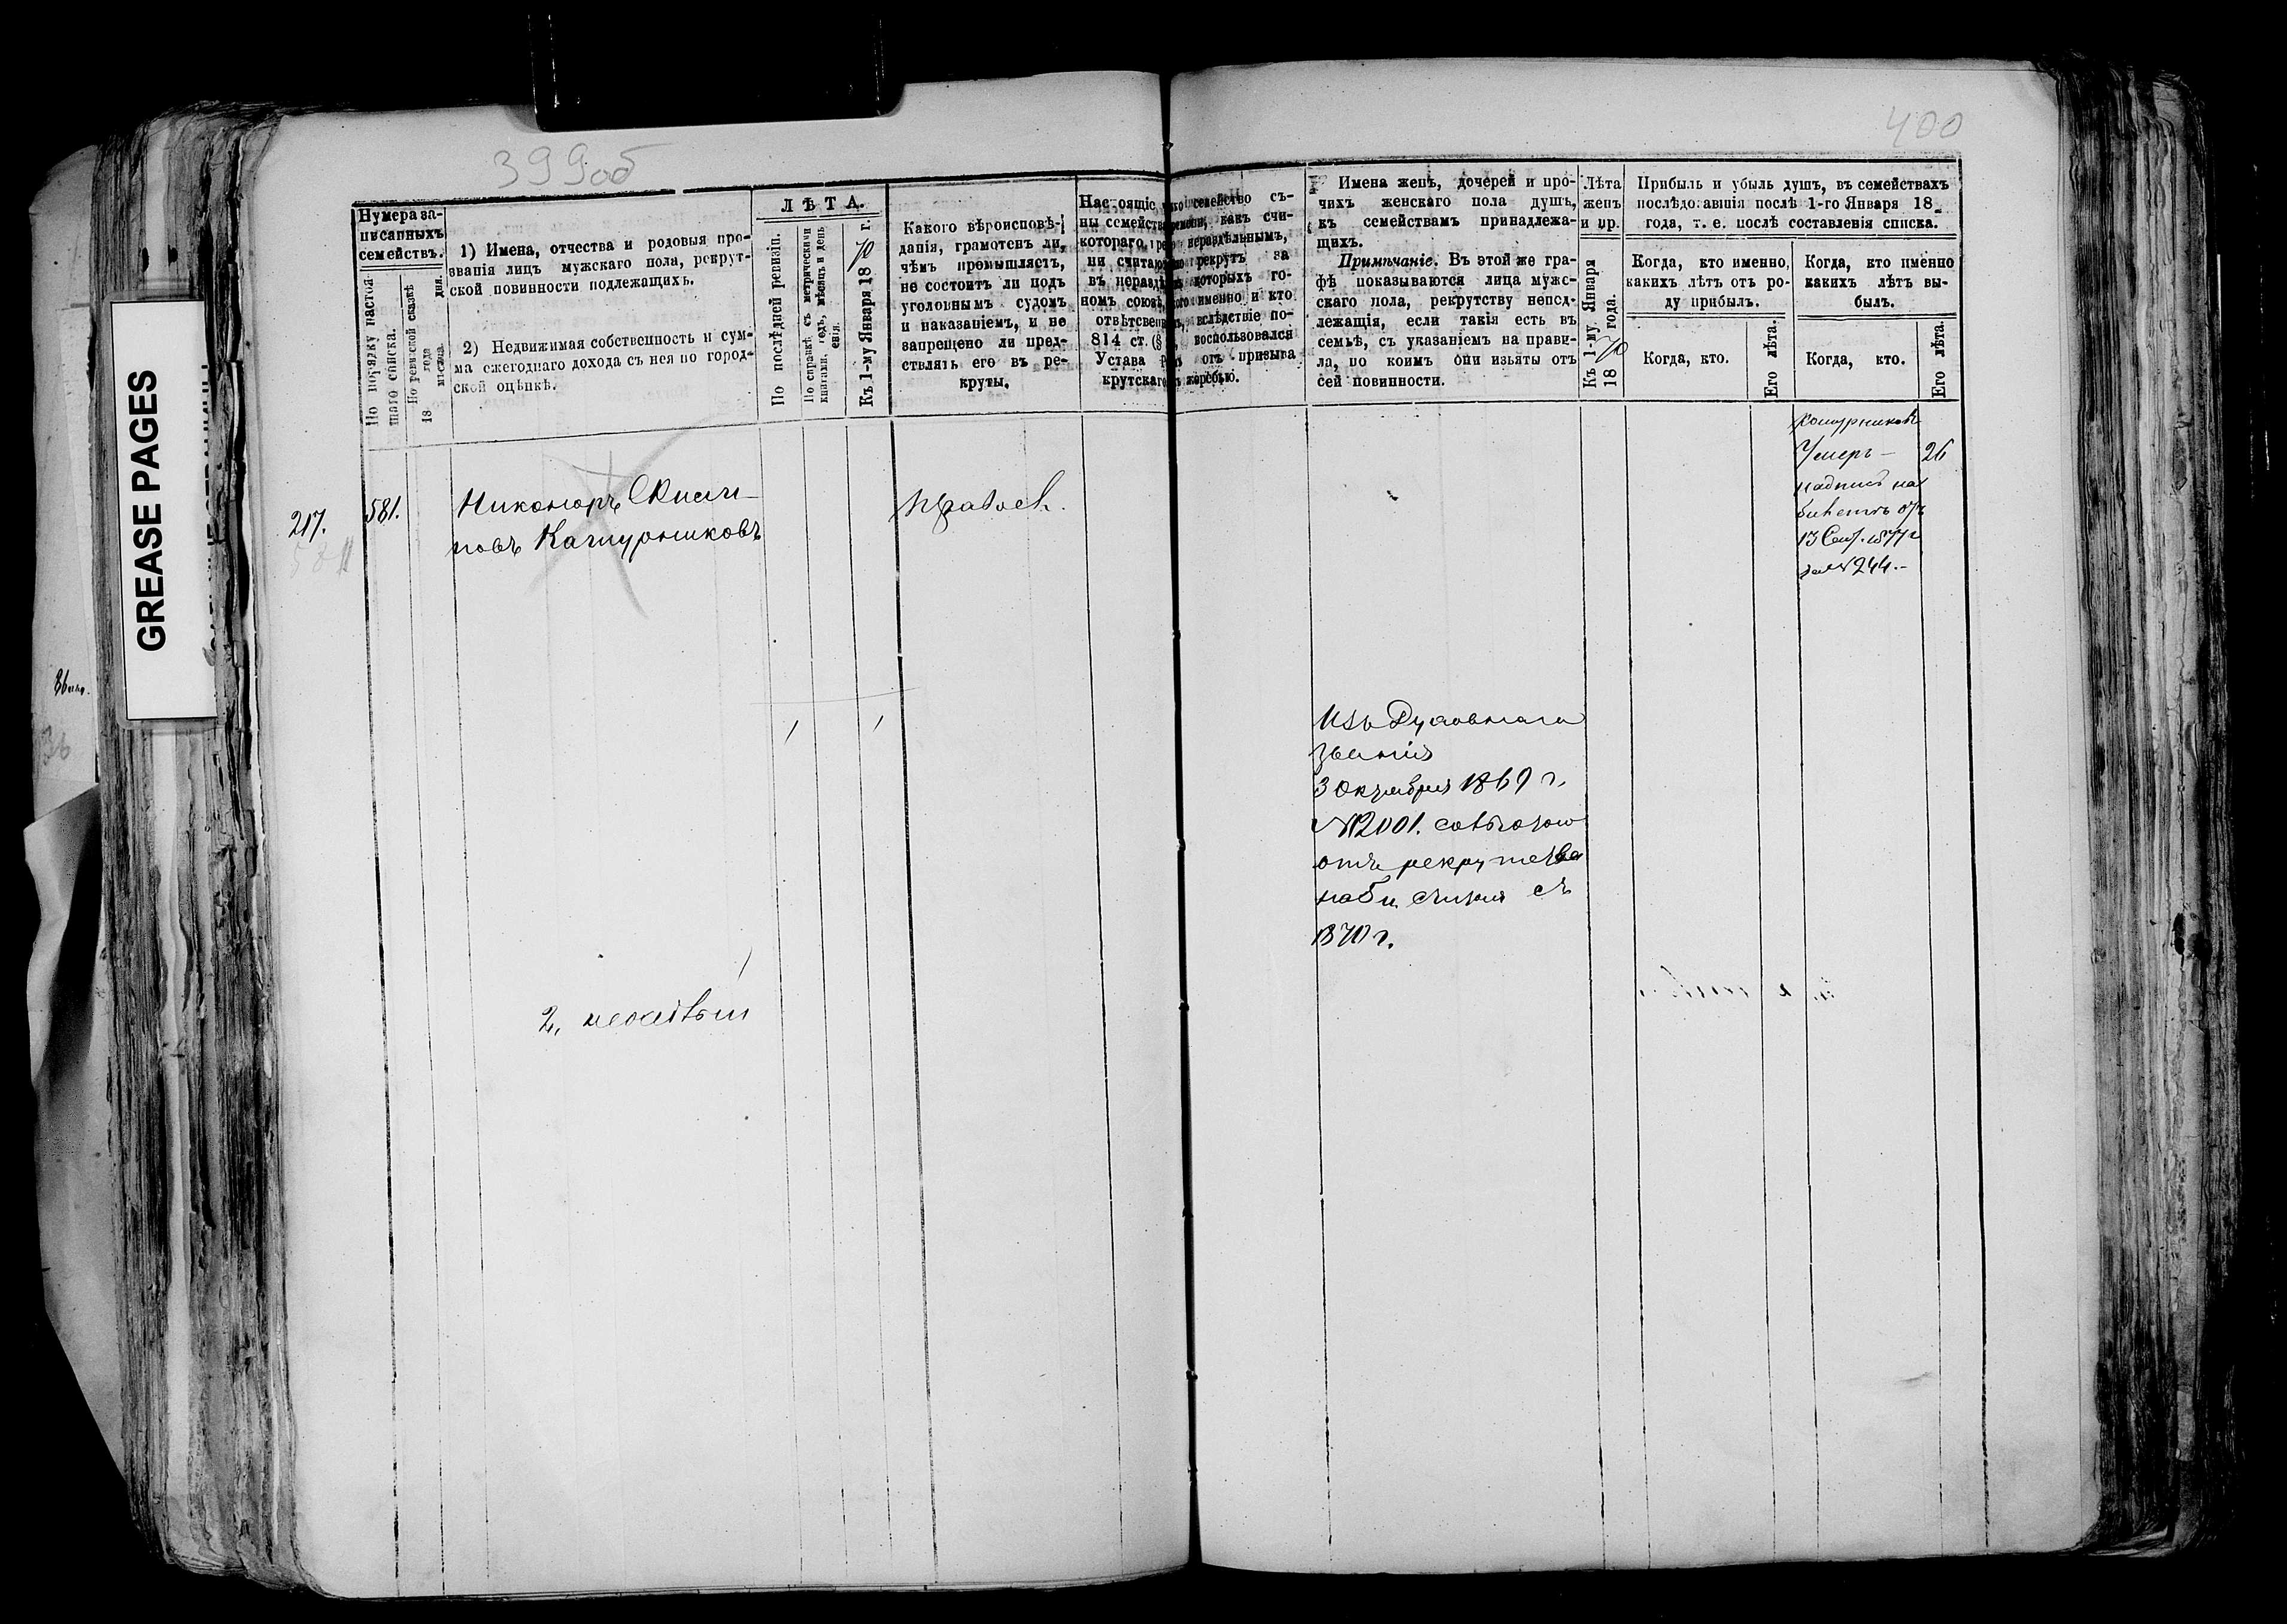 399об
400
GREASE PAGES
Нумера за-
писанныхъ
семействъ.
По порядку настоя-
щаго списка.
По ревизской сказкѣ
18 года
мѣсяца. дня.
1) Имена, отчества и родовыя про-
званія лицъ мужскаго пола, рекрут-
ской повинности подлежащихъ.
2) Недвижимая собственность и сум-
ма ежегоднаго дохода съ нея по город-
ской оцѣнкѣ.
ЛѢТА.
По послѣдней ревизіи.
По справкѣ съ метрическими
книгами, годъ, мѣсяцъ и день
Къ 1-му Января 1870 г.
Какого вѣроисповѣ-
данія, грамотенъ ли,
чѣмъ промышляетъ,
не состоитъ ли подъ
уголовнымъ судомъ
и наказаніемъ, и не
запрещено ли пред-
ствлять его въ ре-
круты.
Имена женъ, дочерей и про-
чихъ женскаго пола душъ,
къ семействамъ принадлежа-
щихъ.
Примѣчаніе. Въ этой же гра-
фѣ показываются лица мужс-
скаго пола, рекрутству непод-
лежащія, если такія есть въ
семьѣ, съ указаніемъ на прави-
ла, по коимъ они изъяты отъ
сей повинности.
Лѣта
женъ
и пр.
Къ 1-му Января
1870 года.
Прибыль и убыль душъ, въ семействахъ
послѣдовавшія послѣ 1-го Января 18
года, т. е. послѣ составленія списка.
Когда, кто именно,
какихъ лѣтъ отъ ро-
ду прибылъ.
Когда, кто именно
какихъ лѣтъ вы-
былъ.
Когда, кто.
Его лѣта.
Когда, кто.
Его лѣта.
217.
581.
581
Никоноръ
Кашурниковъ
Правосл.
2, неимѣетъ
Изъ Духовнаго
званія
3 Октября 1869 г.
№ 2001.
отъ рекрутства
съ
1870 г.
Кошурниковъ
Умеръ — 26
надпись на
билетѣ отъ
13 Сент. 1877 г
за № 244.-